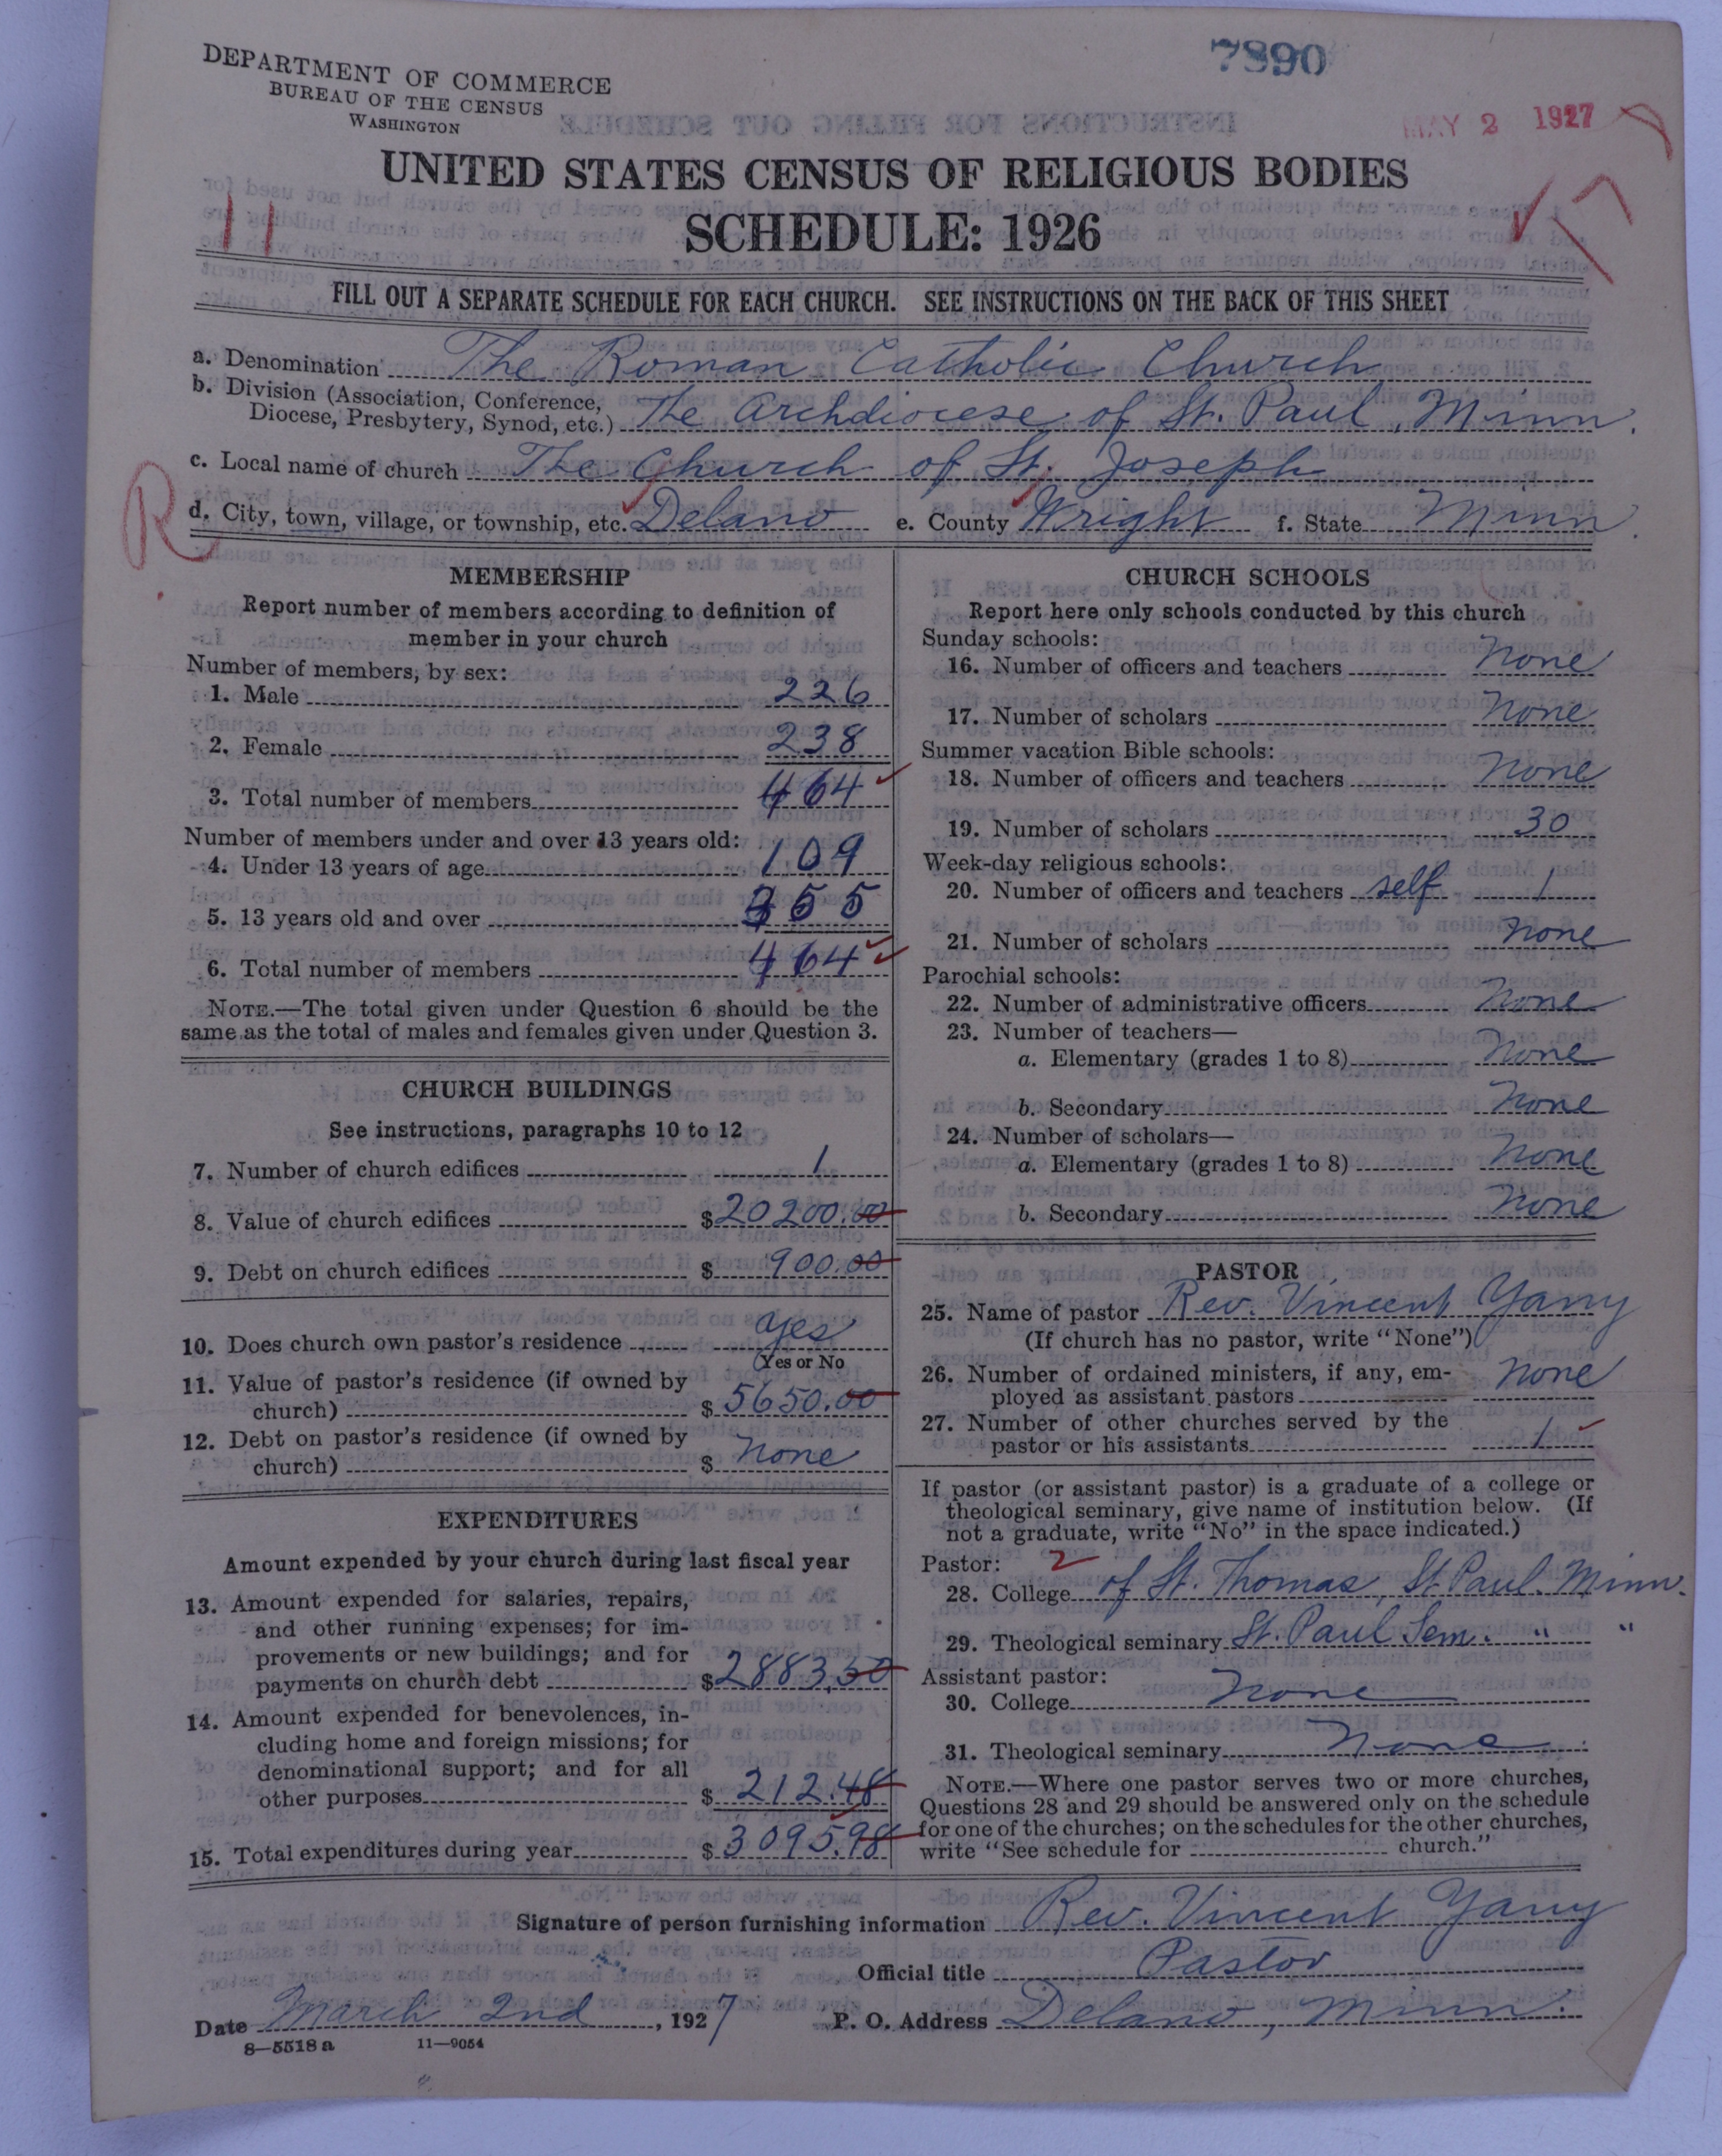 DEPARTMENT OF COMMERCE
BUREAU OF THE CENSUS
WASHINGTON
7890
MAY 2 1927
UNITED STATES CENSUS OF RELIGIOUS BODIES
SCHEDULE: 1926
11
FILL OUT A SEPARATE SCHEDULE FOR EACH CHURCH. SEE INSTRUCTIONS ON THE BACK OF THIS SHEET
a. Denomination The Roman Catholic Church
b. Division (Association, Conference,
Diocese, Presbytery, Synod, etc.) The Archdiocese of St. Paul, Minn.
c. Local name of church The Church of St. Joseph
R
d. City, town, village, or township, etc. Delano e. County Wright f. State Minn.
MEMBERSHIP
Report number of members according to definition of
member in your church
Number of members, by sex:
1. Male 226
2. Female 238
3. Total number of members 464
Number of members under and over 13 years old:
4. Under 13 years of age 109
5. 13 years old and over 355
6. Total number of members 464
NOTE.—The total given under Question 6 should be the
same as the total of males and females given under Question 3.
CHURCH BUILDINGS
See instructions, paragraphs 10 to 12
7. Number of church edifices 1
8. Value of church edifices $20200.00
9. Debt on church edifices $ 900.00
10. Does church own pastor's residence yes
Yes or No
11. Value of pastor's residence (if owned by
church) $ 5650.00
12. Debt on pastor's residence (if owned by
church) $ none
EXPENDITURES
Amount expended by your church during last fiscal year
13. Amount expended for salaries, repairs,
and other running expenses; for im-
provements or new buildings; and for
payments on church debt $2883.50
14. Amount expended for benevolences, in-
cluding home and foreign missions; for
denominational support; and for all
other purposes $ 212.48
15. Total expenditures during year $ 3095.98
CHURCH SCHOOLS
Report here only schools conducted by this church
Sunday schools:
16. Number of officers and teachers none
17. Number of scholars none
Summer vacation Bible schools:
18. Number of officers and teachers none
19. Number of scholars 30
Week-day religious schools:
20. Number of officers and teachers self 1
21. Number of scholars none
Parochial schools:
22. Number of administrative officers none
23. Number of teachers—
a. Elementary (grades 1 to 8) none
b. Secondary none
24. Number of scholars—
a. Elementary (grades 1 to 8) none
b. Secondary none
PASTOR
25. Name of pastor Rev. Vincent Yarry
(If church has no pastor, write "None")
26. Number of ordained ministers, if any, em-
ployed as assistant pastors none
27. Number of other churches served by the
pastor or his assistants 1
If pastor (or assistant pastor) is a graduate of a college or
theological seminary, give name of institution below. (If
not a graduate, write "No" in the space indicated.)
Pastor: 2
28. College of St. Thomas, St. Paul. Minn.
29. Theological seminary St. Paul Sem. " "
Assistant pastor:
30. College none
31. Theological seminary None
NOTE.—Where one pastor serves two or more churches,
Questions 28 and 29 should be answered only on the schedule
for one of the churches; on the schedules for the other churches,
write "See schedule for church."
Signature of person furnishing information Rev. Vincent Yarry
Official title Pastor
Date March 2nd, 1927 P. O. Address Delano, Minn.
8—5518 a 11—9054